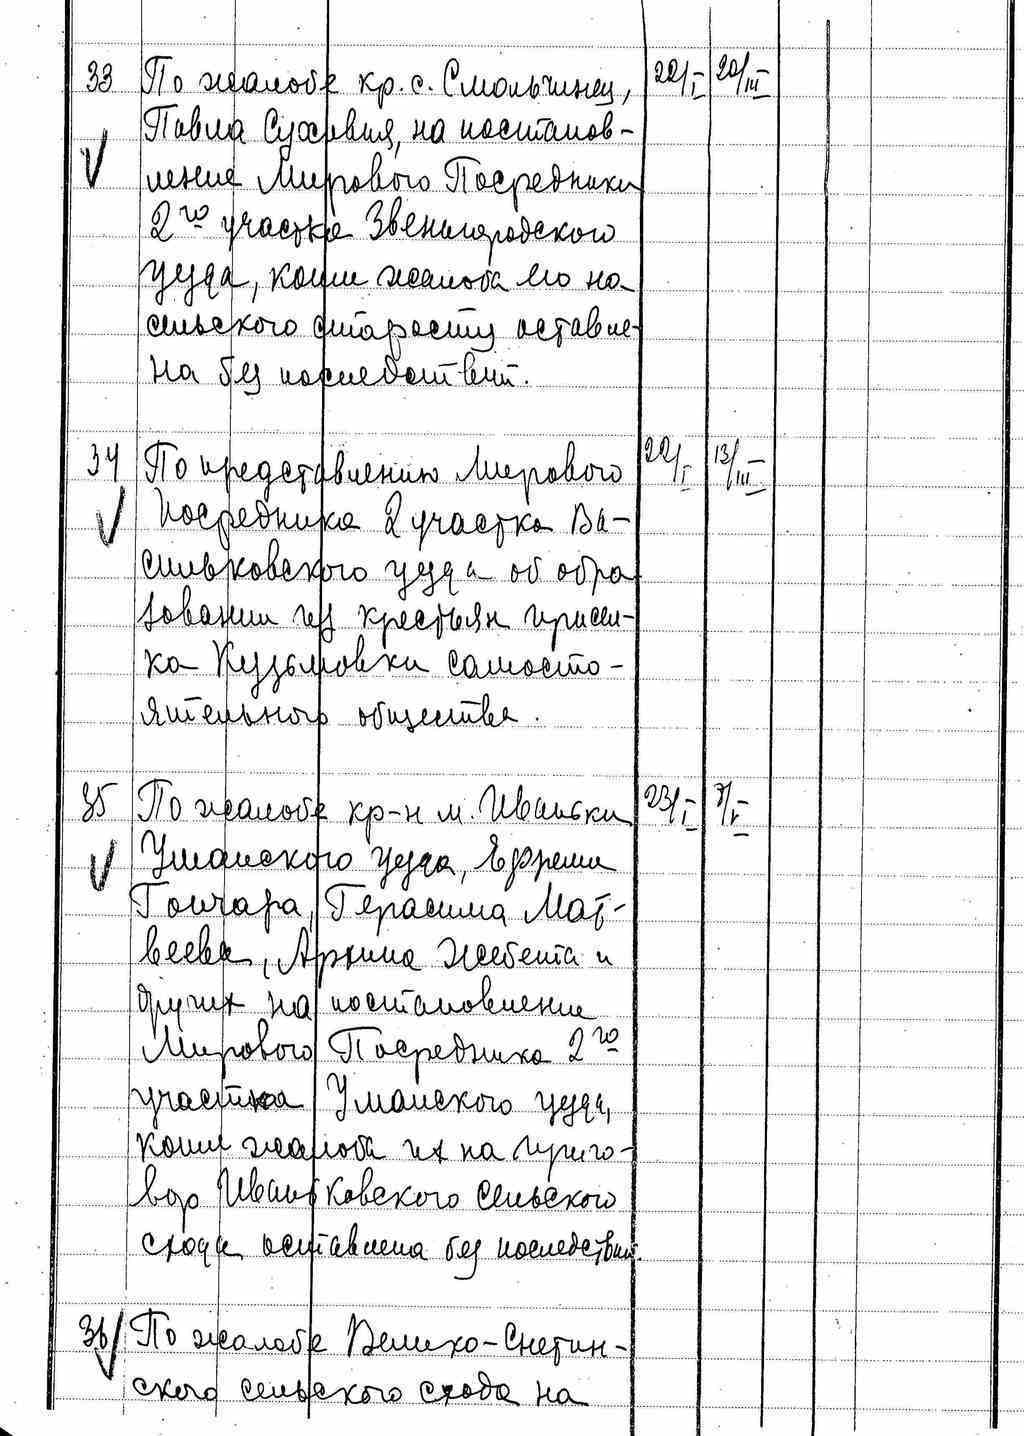 33 По жалобе кр. с. Смольчинец, 22/I 20/III
Павла Сухевия, на постанов-
ление Мирового Посредника
2го участка Звенигородского
уезда, коим жалоба его на
сельского старосту оставле-
на без последствий.
34 По представлению Мирового 22/I 13/III
Посредника 2 участка Ва-
сильковского уезда об обра
зовании из крестьян присел-
ка Кузьмовки самосто-
ятельного общества.
35 По жалобе кр-н м. Иваньки 23/I
Уманского уезда, Ефрема
Гончара, Герасима Мат-
веева, Архипа Жебета и
других на постановление
Мирового Посредника 2го
участка Уманского уезда,
коим жалоба их на приго-
вор Иваньковского сельского
схода оставлена без последствий.
36 По жалобе Велико-Снетин-
ского сельского схода на